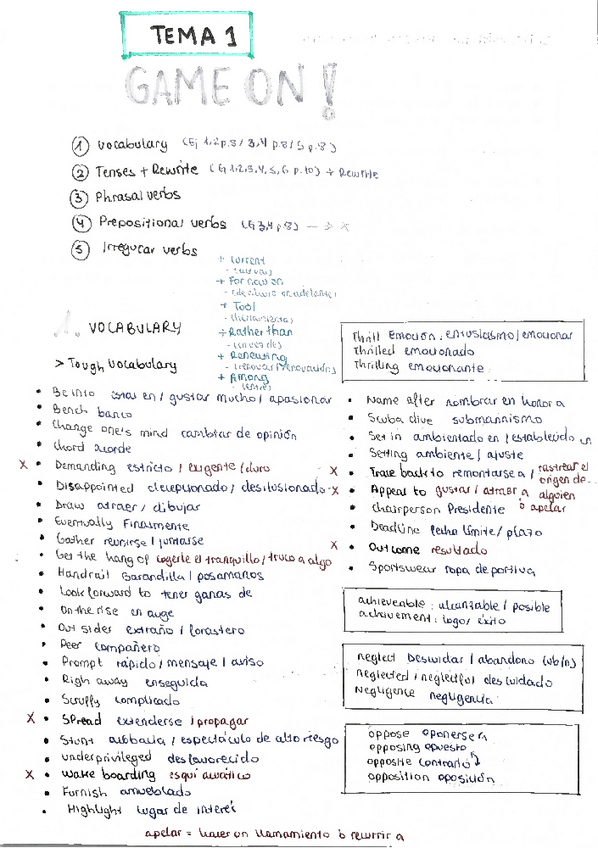 TEMA 1
GAME ON!
1 Vocabulary (Ej 1,2 p.8 / 3,4 p.8 / 5 p.8)
2 Tenses + Rewrite (Ej 1,2,3,4,5,6 p.10) + Rewrite
3 Phrasal verbs
4 Prepositional verbs (Ej 3,4 p.8)
5 Irregular verbs
+ Current
+ For now on
+ Tool
- Herramienta
+ Rather than
- en vez de
+ Renewing
+ Among
- entre
1. VOCABULARY
> Tough Vocabulary
• Be into estar en / gustar mucho / apasionar
• Bench banco
• Change one's mind cambiar de opinión
• Chord acorde
X • Demanding estricto / exigente / duro
• Disappointed decepcionado / desilusionado
• Draw atraer / dibujar
• Eventually Finalmente
• Gather reunirse / juntarse
• Get the hang of cogerle el tranquillo / truco a algo
• Handrail Barandilla / posamanos
• Look forward to tener ganas de
• On the rise en auge
• Outsider extraño / forastero
• Peer compañero
• Prompt rápido / mensaje / aviso
• Righ away enseguida
• Scruffy complicado
X • Spread extenderse / propagar
• Stunt / espectáculo de alto riesgo
• underprivileged desfavorecido
X • Wake boarding esquí acuático
• Furnish amueblado
• Highlight lugar de interés
Thrill Emoción, entusiasmo / emocionar
Thrilled emocionado
Thrilling emocionante
• Name after nombrar en honor a
• Scuba dive submarinismo
• Set in ambientado en / establecido en
• Setting ambiente / ajuste
X • Trace back to remontarse a / rastrear el origen de
X • Appeal to gustar / atraer a alguien ó apelar
• Chairperson Presidente
• Deadline fecha límite / plazo
X • Outcome resultado
• Sportswear ropa deportiva
achieveable: alcanzable / posible
achivement: logo/ éxito
neglect Descuidar / abandono (vb/n)
neglected / neglectful descuidado
Negligence negligencia
oppose oponerse a
opposing opuesto
opposite contrario
opposition oposición
apelar = hacer un llamamiento ó recurrir a